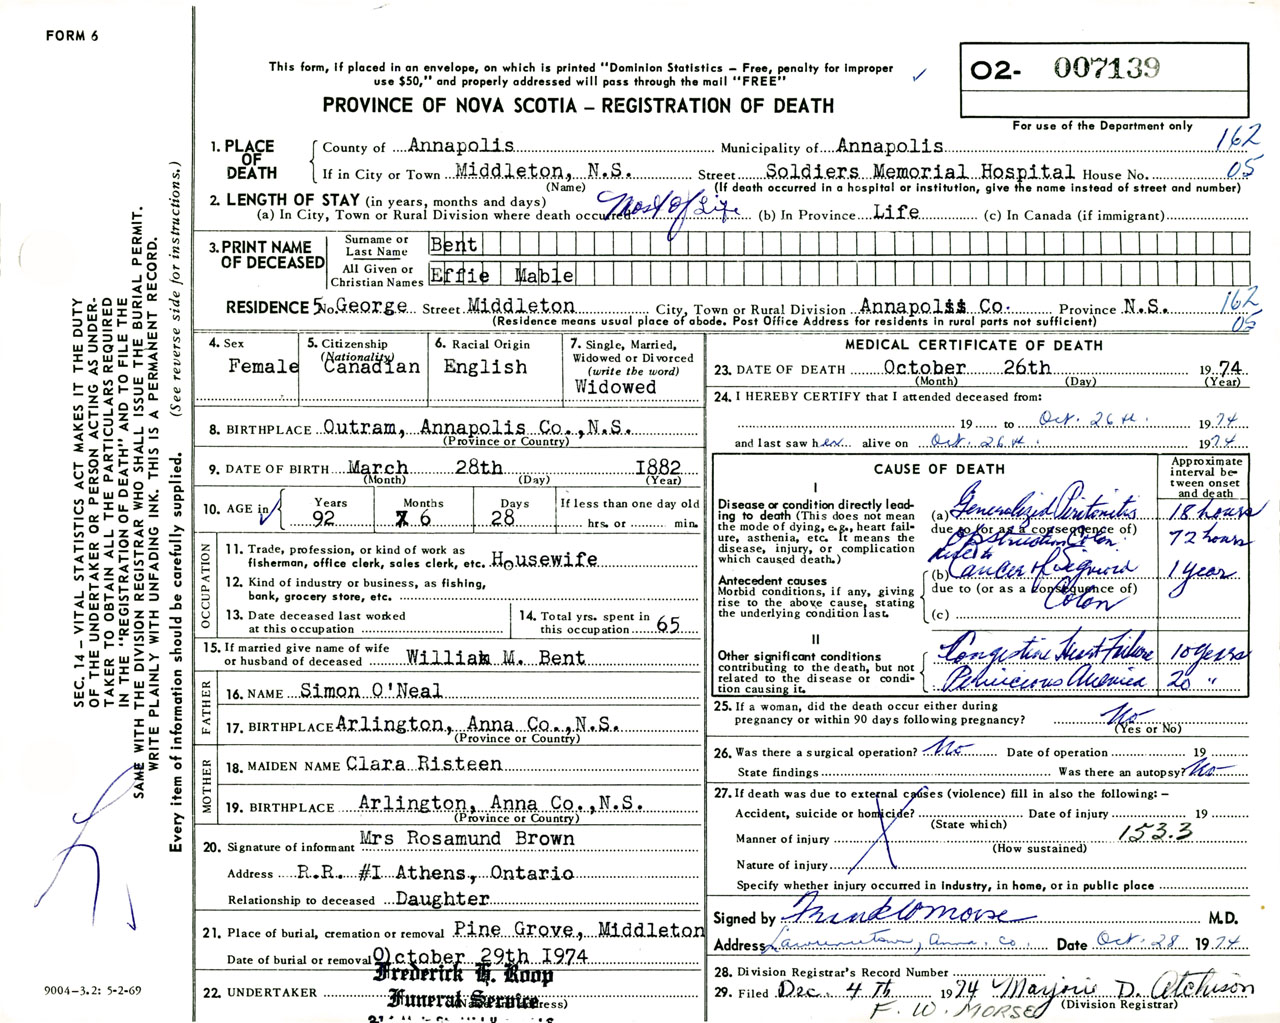 FORM 6
This form, if placed in an envelope, on which is printed "Dominion Statistics – Free, penalty for improper
use $50," and properly addressed will pass through the mail "FREE"
PROVINCE OF NOVA SCOTIA – REGISTRATION OF DEATH
02- 007139
For use of the Department only
162
05
1. PLACE OF DEATH
County of Annapolis Municipality of Annapolis
If in City or Town Middleton, N.S. Street Soldiers Memorial Hospital House No.
(Name) (If death occurred in a hospital or institution, give the name instead of street and number)
2. LENGTH OF STAY (in years, months and days)
(a) In City, Town or Rural Division where death occurred Most of Life (b) In Province Life (c) In Canada (if immigrant)
3. PRINT NAME OF DECEASED
Surname or Last Name Bent
All Given or Christian Names Effie Mable
RESIDENCE No. 5 George Street Middleton City, Town or Rural Division Annapolis Co. Province N.S.
162
05
(Residence means usual place of abode. Post Office Address for residents in rural parts not sufficient)
4. Sex Female
5. Citizenship (Nationality) Canadian
6. Racial Origin English
7. Single, Married, Widowed or Divorced (write the word) Widowed
8. BIRTHPLACE Outram, Annapolis Co., N.S.
(Province or Country)
9. DATE OF BIRTH March 28th 1882
(Month) (Day) (Year)
10. AGE in Years 92 Months 6 Days 28 If less than one day old hrs. or min.
OCCUPATION
11. Trade, profession, or kind of work as
fisherman, office clerk, sales clerk, etc. Housewife
12. Kind of industry or business, as fishing,
bank, grocery store, etc.
13. Date deceased last worked
at this occupation
14. Total yrs. spent in
this occupation 65
15. If married give name of wife
or husband of deceased William M. Bent
FATHER
16. NAME Simon O'Neal
17. BIRTHPLACE Arlington, Anna Co., N.S.
(Province or Country)
MOTHER
18. MAIDEN NAME Clara Risteen
19. BIRTHPLACE Arlington, Anna Co., N.S.
(Province or Country)
20. Signature of informant Mrs Rosamund Brown
Address R.R. #I Athens, Ontario
Relationship to deceased Daughter
21. Place of burial, cremation or removal Pine Grove, Middleton
Date of burial or removal October 29th 1974
22. UNDERTAKER Frederick H. Roop
Funeral Service
MEDICAL CERTIFICATE OF DEATH
23. DATE OF DEATH October 26th 1974
(Month) (Day) (Year)
24. I HEREBY CERTIFY that I attended deceased from:
19 to Oct. 26th. 1974
and last saw her alive on Oct. 26th. 1974
CAUSE OF DEATH
Approximate interval between onset and death
I
Disease or condition directly leading to death (This does not mean the mode of dying, e.g., heart failure, asthenia, etc. It means the disease, injury, or complication which caused death.)
(a) Generalized Peritonitis 18 hours
due to (or as a consequence of)
Obstruction Colon 72 hours
due to
Antecedent causes
Morbid conditions, if any, giving rise to the above cause, stating the underlying condition last.
(b) Cancer of Sigmoid 1 year
due to (or as a consequence of)
Colon
(c)
II
Other significant conditions contributing to the death, but not related to the disease or condition causing it.
Congestive Heart Failure 10 years
Pernicious Anemia 20 "
25. If a woman, did the death occur either during
pregnancy or within 90 days following pregnancy? No
(Yes or No)
26. Was there a surgical operation? No Date of operation 19
State findings Was there an autopsy? No
27. If death was due to external causes (violence) fill in also the following: –
Accident, suicide or homicide? Date of injury 19
(State which)
Manner of injury 153.3
(How sustained)
Nature of injury
Specify whether injury occurred in industry, in home, or in public place
Signed by Frank W Morse M.D.
Address Lawrencetown, Anna. Co. Date Oct. 28 1974
28. Division Registrar's Record Number
29. Filed Dec. 4 Th 1974 Marjorie D. Atchison
(Division Registrar)
F. W. MORSE
SEC. 14 – VITAL STATISTICS ACT MAKES IT THE DUTY
OF THE UNDERTAKER OR PERSON ACTING AS UNDER-
TAKER TO OBTAIN ALL THE PARTICULARS REQUIRED
IN THE "REGISTRATION OF DEATH" AND TO FILE THE
SAME WITH THE DIVISION REGISTRAR WHO SHALL ISSUE THE BURIAL PERMIT.
WRITE PLAINLY WITH UNFADING INK. THIS IS A PERMANENT RECORD.
Every item of information should be carefully supplied. (See reverse side for instructions.)
9004-3.2: 5-2-69